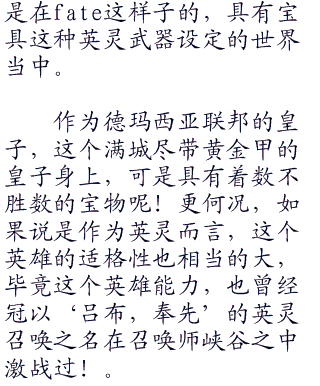 是在fate这样子的，具有宝
具这种英灵武器设定的世界
当中。
作为德玛西亚联邦的皇
子，这个满城尽带黄金甲的
皇子身上，可是具有着数不
胜数的宝物呢！更何况，如
果说是作为英灵而言，这个
英雄的适格性也相当的大，
毕竟这个英雄能力，也曾经
冠以‘吕布，奉先’的英灵
召唤之名在召唤师峡谷之中
激战过！。